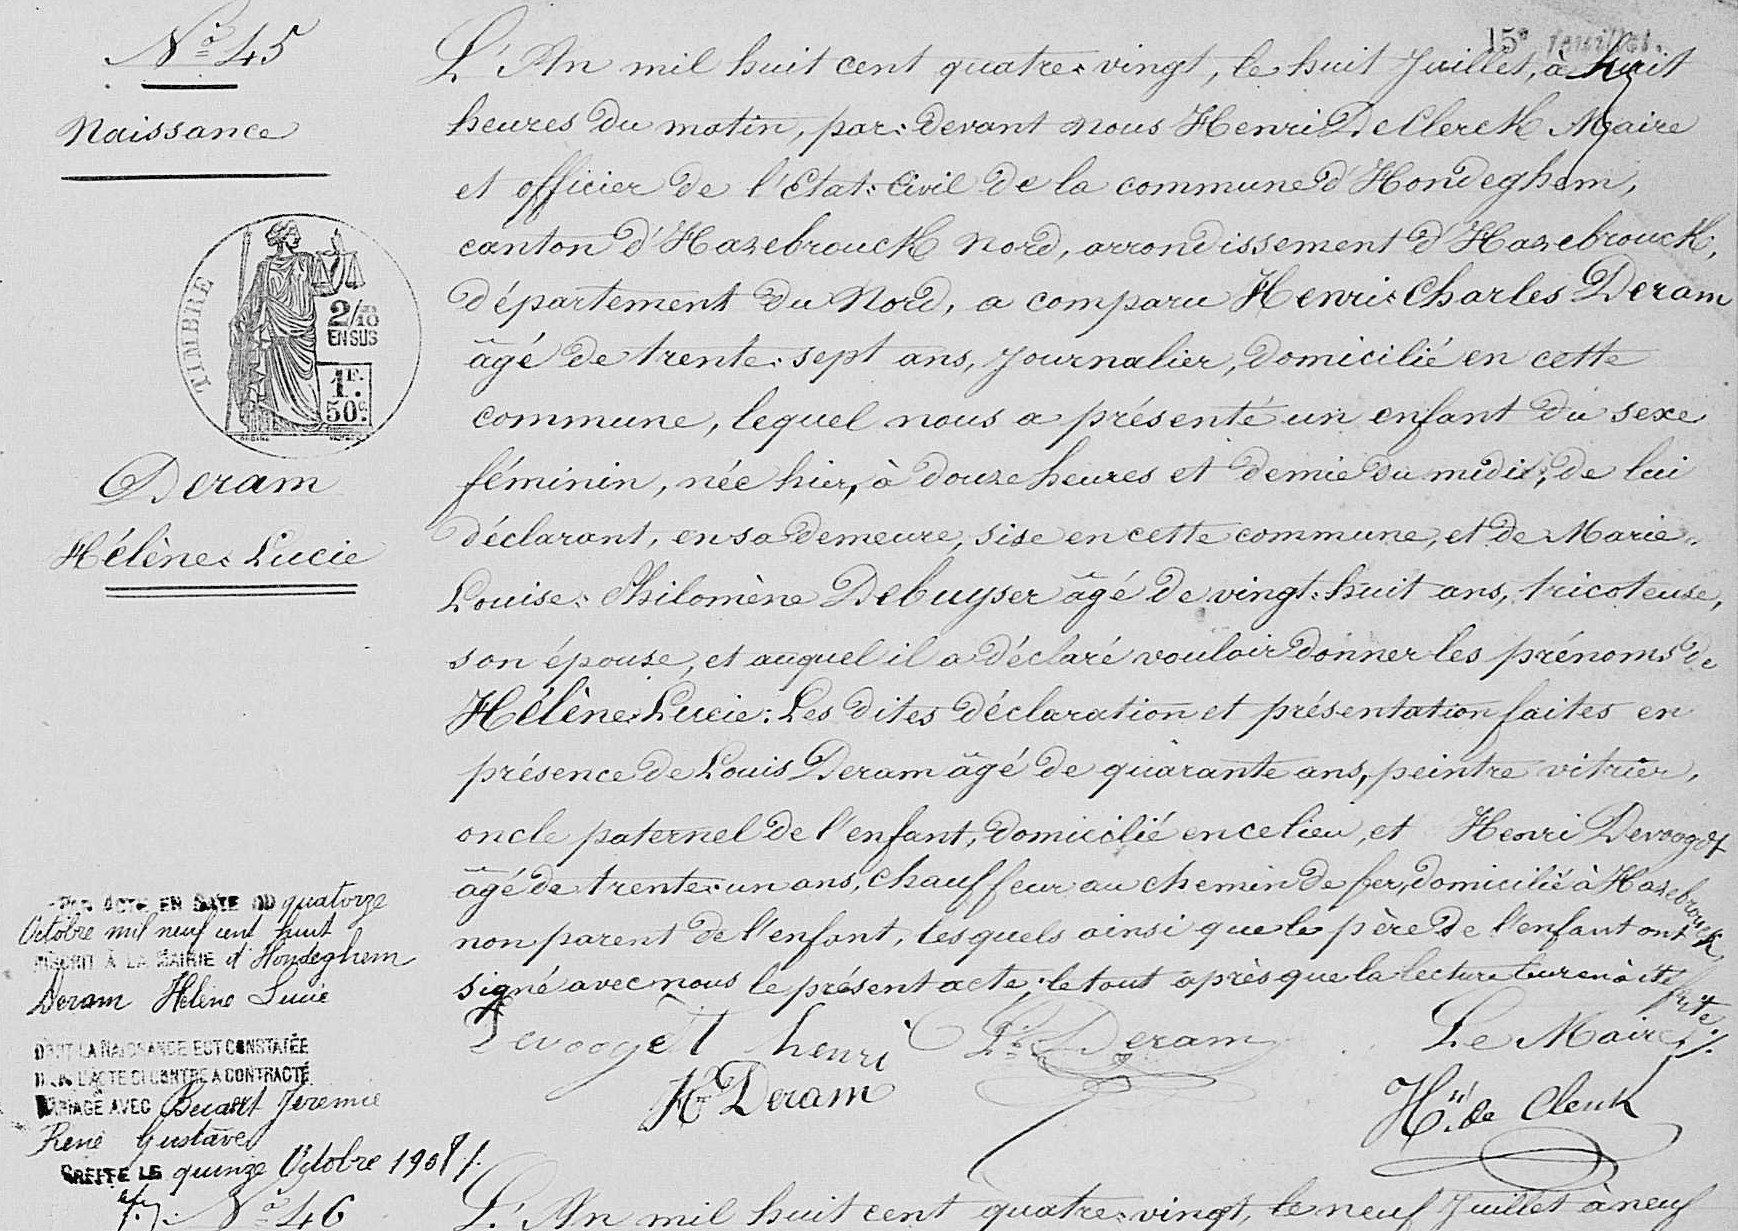 15e feuillet.
No 45
Naissance
TIMBRE
2/10
EN SUS
1F.
50c.
Deram
Hélène-Lucie
L'An mil huit cent quatre-vingt, le huit Juillet, à huit
heures du matin, par-devant nous Henri De Clerck Maire
et officier de l'Etat-Civil de la commune d'Hondeghem,
canton d'Hazebrouck Nord, arrondissement d'Hazebrouck,
département du Nord, a comparu Henri-Charles Deram
âgé de trente-sept ans, journalier, domicilié en cette
commune, lequel nous a présenté un enfant du sexe
féminin, née hier, à douze heures et demie du midi, de lui
déclarant, en sa demeure, sise en cette commune, et de Marie-
Louise-Philomène Debuyser âgé de vingt-huit ans, tricoteuse,
son épouse, et auquel il a déclaré vouloir donner les prénoms de
Hélène-Lucie: Les dites déclaration et présentation faites en
présence de Louis Deram âgé de quarante ans, peintre vitrier,
oncle paternel de l'enfant, domicilié en ce lieu, et Henri Devoogdt
âgé de trente-un ans, chauffeur au chemin de fer, domicilié à Hazebrouck
non parent de l'enfant, lesquels ainsi que le père de l'enfant ont
signé avec nous le présent acte, le tout après que la lecture leur en a été faite.
Devoogdt henri Ls Deram Le Maire,
Hri Deram Hri de Clerck
PAR ACTE EN DATE DU quatorze
Octobre mil neuf cent huit
INSCRIT À LA MAIRIE d'Hondeghem
Deram Hélène Lucie
DONT LA NAISSANCE EST CONSTATÉE
DANS L'ACTE CI CONTRE A CONTRACTÉ
MARIAGE AVEC Becaert Jeremie
René Gustave
GREFFE LE quinze Octobre 1908 /.
No 46
L'An mil huit cent quatre-vingt, le neuf Juillet à neuf